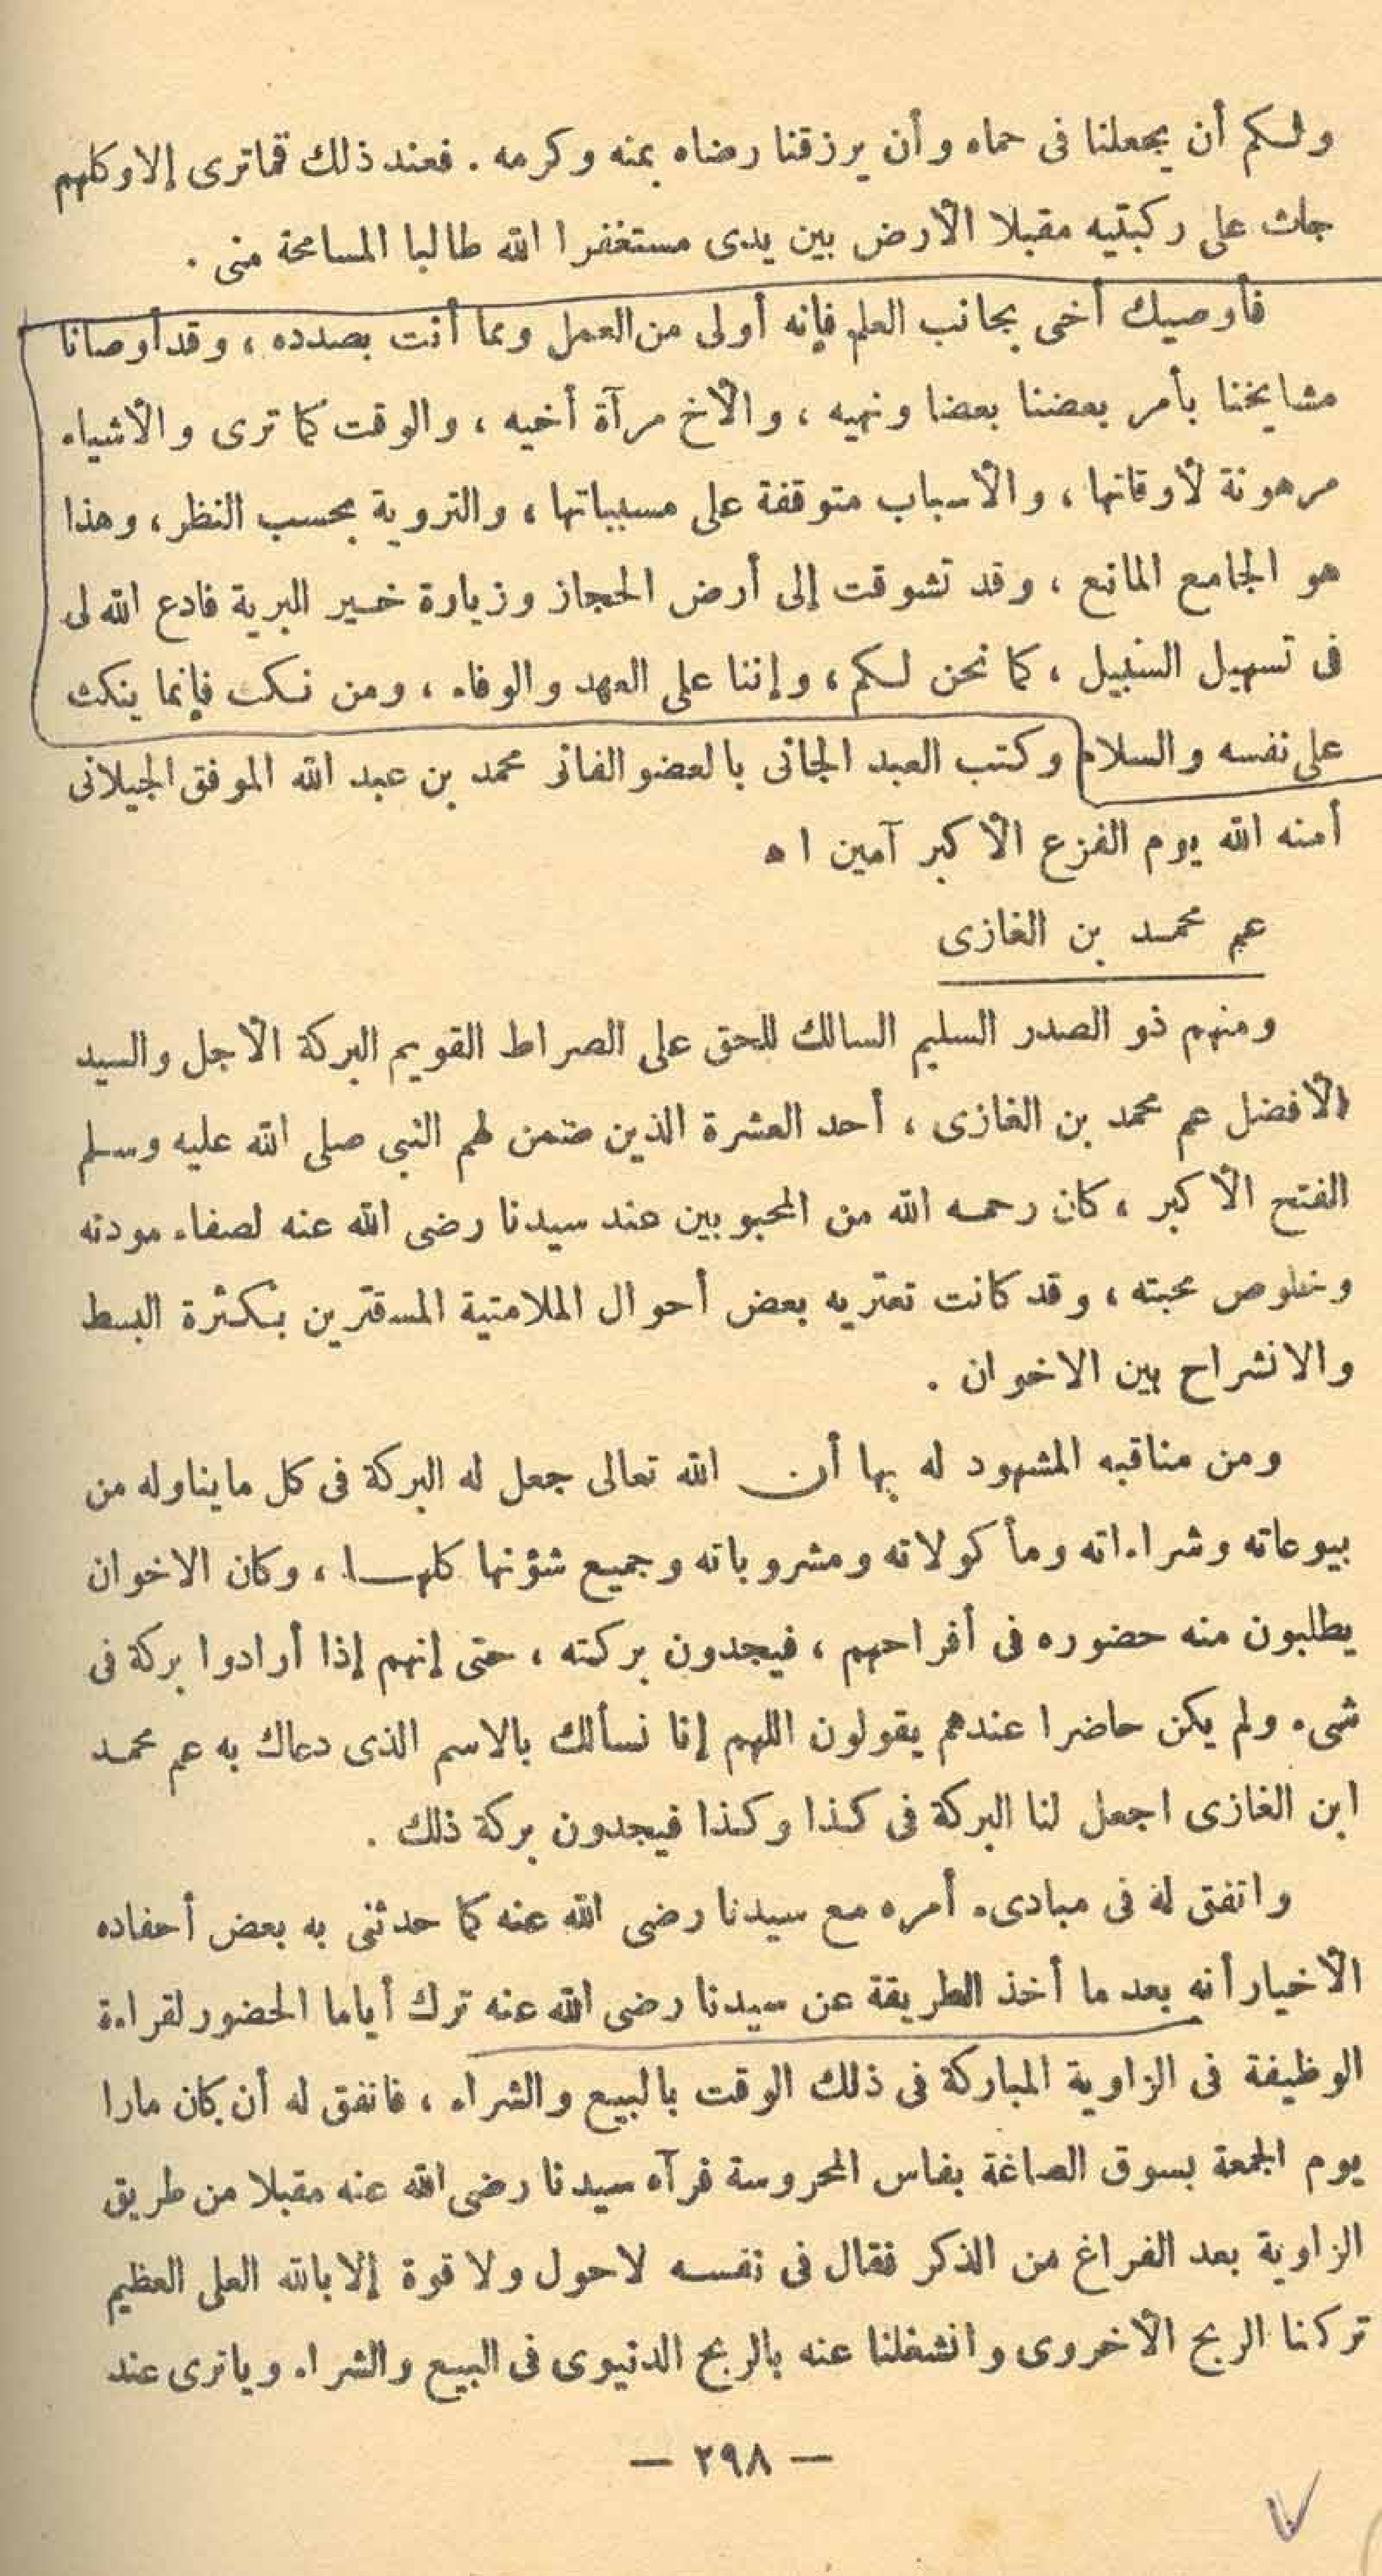 ولكم أن يجعلنا فى حماه وأن يرزقنا رضاه بمنه وكرمه . فعند ذلك قما ترى إلا وكلهم
جاث على ركبتيه مقبلا الأرض بين يدى مستغفرا الله طالبا المسامحة منى .
فأوصيك أخى بجانب العلم فإنه أولى من العمل وبما أنت بصدده ، وقد أوصانا
مشايخنا بأمر بعضنا بعضا ونهيه ، والأخ مرآة أخيه ، والوقت كما ترى والأشياء
مرهونة لأوقاتها ، والأسباب متوقفة على مسبباتها ، والتروية بحسب النظر ، وهذا
هو الجامع المانع ، وقد تشوقت إلى أرض الحجاز وزيارة خير البرية فادع الله لى
فى تسهيل السبيل ، كما نحن لكم ، وإننا على العهد والوفاء ، ومن نكث فإنما ينكث
على نفسه والسلام وكتب العبد الجانى بالعضو الفانى محمد بن عبد الله الموفق الجيلانى
أمنه الله يوم الفزع الأكبر آمين اه
عم محمد بن الغازى
ومنهم ذو الصدر السليم السالك للحق على الصراط القويم البركة الأجل والسيد
الأفضل عم محمد بن الغازى ، أحد العشرة الذين ضمن لهم النبى صلى الله عليه وسلم
الفتح الأكبر ، كان رحمه الله من المحبوبين عند سيدنا رضى الله عنه لصفاء مودته
وخلوص محبته ، وقد كانت تعتريه بعض أحوال الملامتية المستترين بكثرة البسط
والانشراح بين الاخوان .
ومن مناقبه المشهود له بها أن الله تعالى جعل له البركة فى كل ما يناوله من
بيوعاته وشراءاته ومأكولاته ومشروباته وجميع شؤنها كلها ، وكان الاخوان
يطلبون منه حضوره فى أفراحهم ، فيجدون بركته ، حتى إنهم إذا أرادوا بركة فى
شىء ولم يكن حاضرا عندهم يقولون اللهم إنا نسألك بالاسم الذى دعاك به عم محمد
ابن الغازى اجعل لنا البركة فى كذا وكذا فيجدون بركة ذلك .
واتفق له فى مبادىء أمره مع سيدنا رضى الله عنه كما حدثنى به بعض أحفاده
الأخيار أنه بعد ما أخذ الطريقة عن سيدنا رضى الله عنه ترك أياما الحضور لقراءة
الوظيفة فى الزاوية المباركة فى ذلك الوقت بالبيع والشراء ، فاتفق له أن كان مارا
يوم الجمعة بسوق الصاغة بفاس المحروسة فرآه سيدنا رضى الله عنه مقبلا من طريق
الزاوية بعد الفراغ من الذكر فقال فى نفسه لاحول ولا قوة إلا بالله العلى العظيم
تركنا الربح الأخروى وانشغلنا عنه بالربح الدنيوى فى البيع والشراء وياترى عند
— ٢٩٨ —